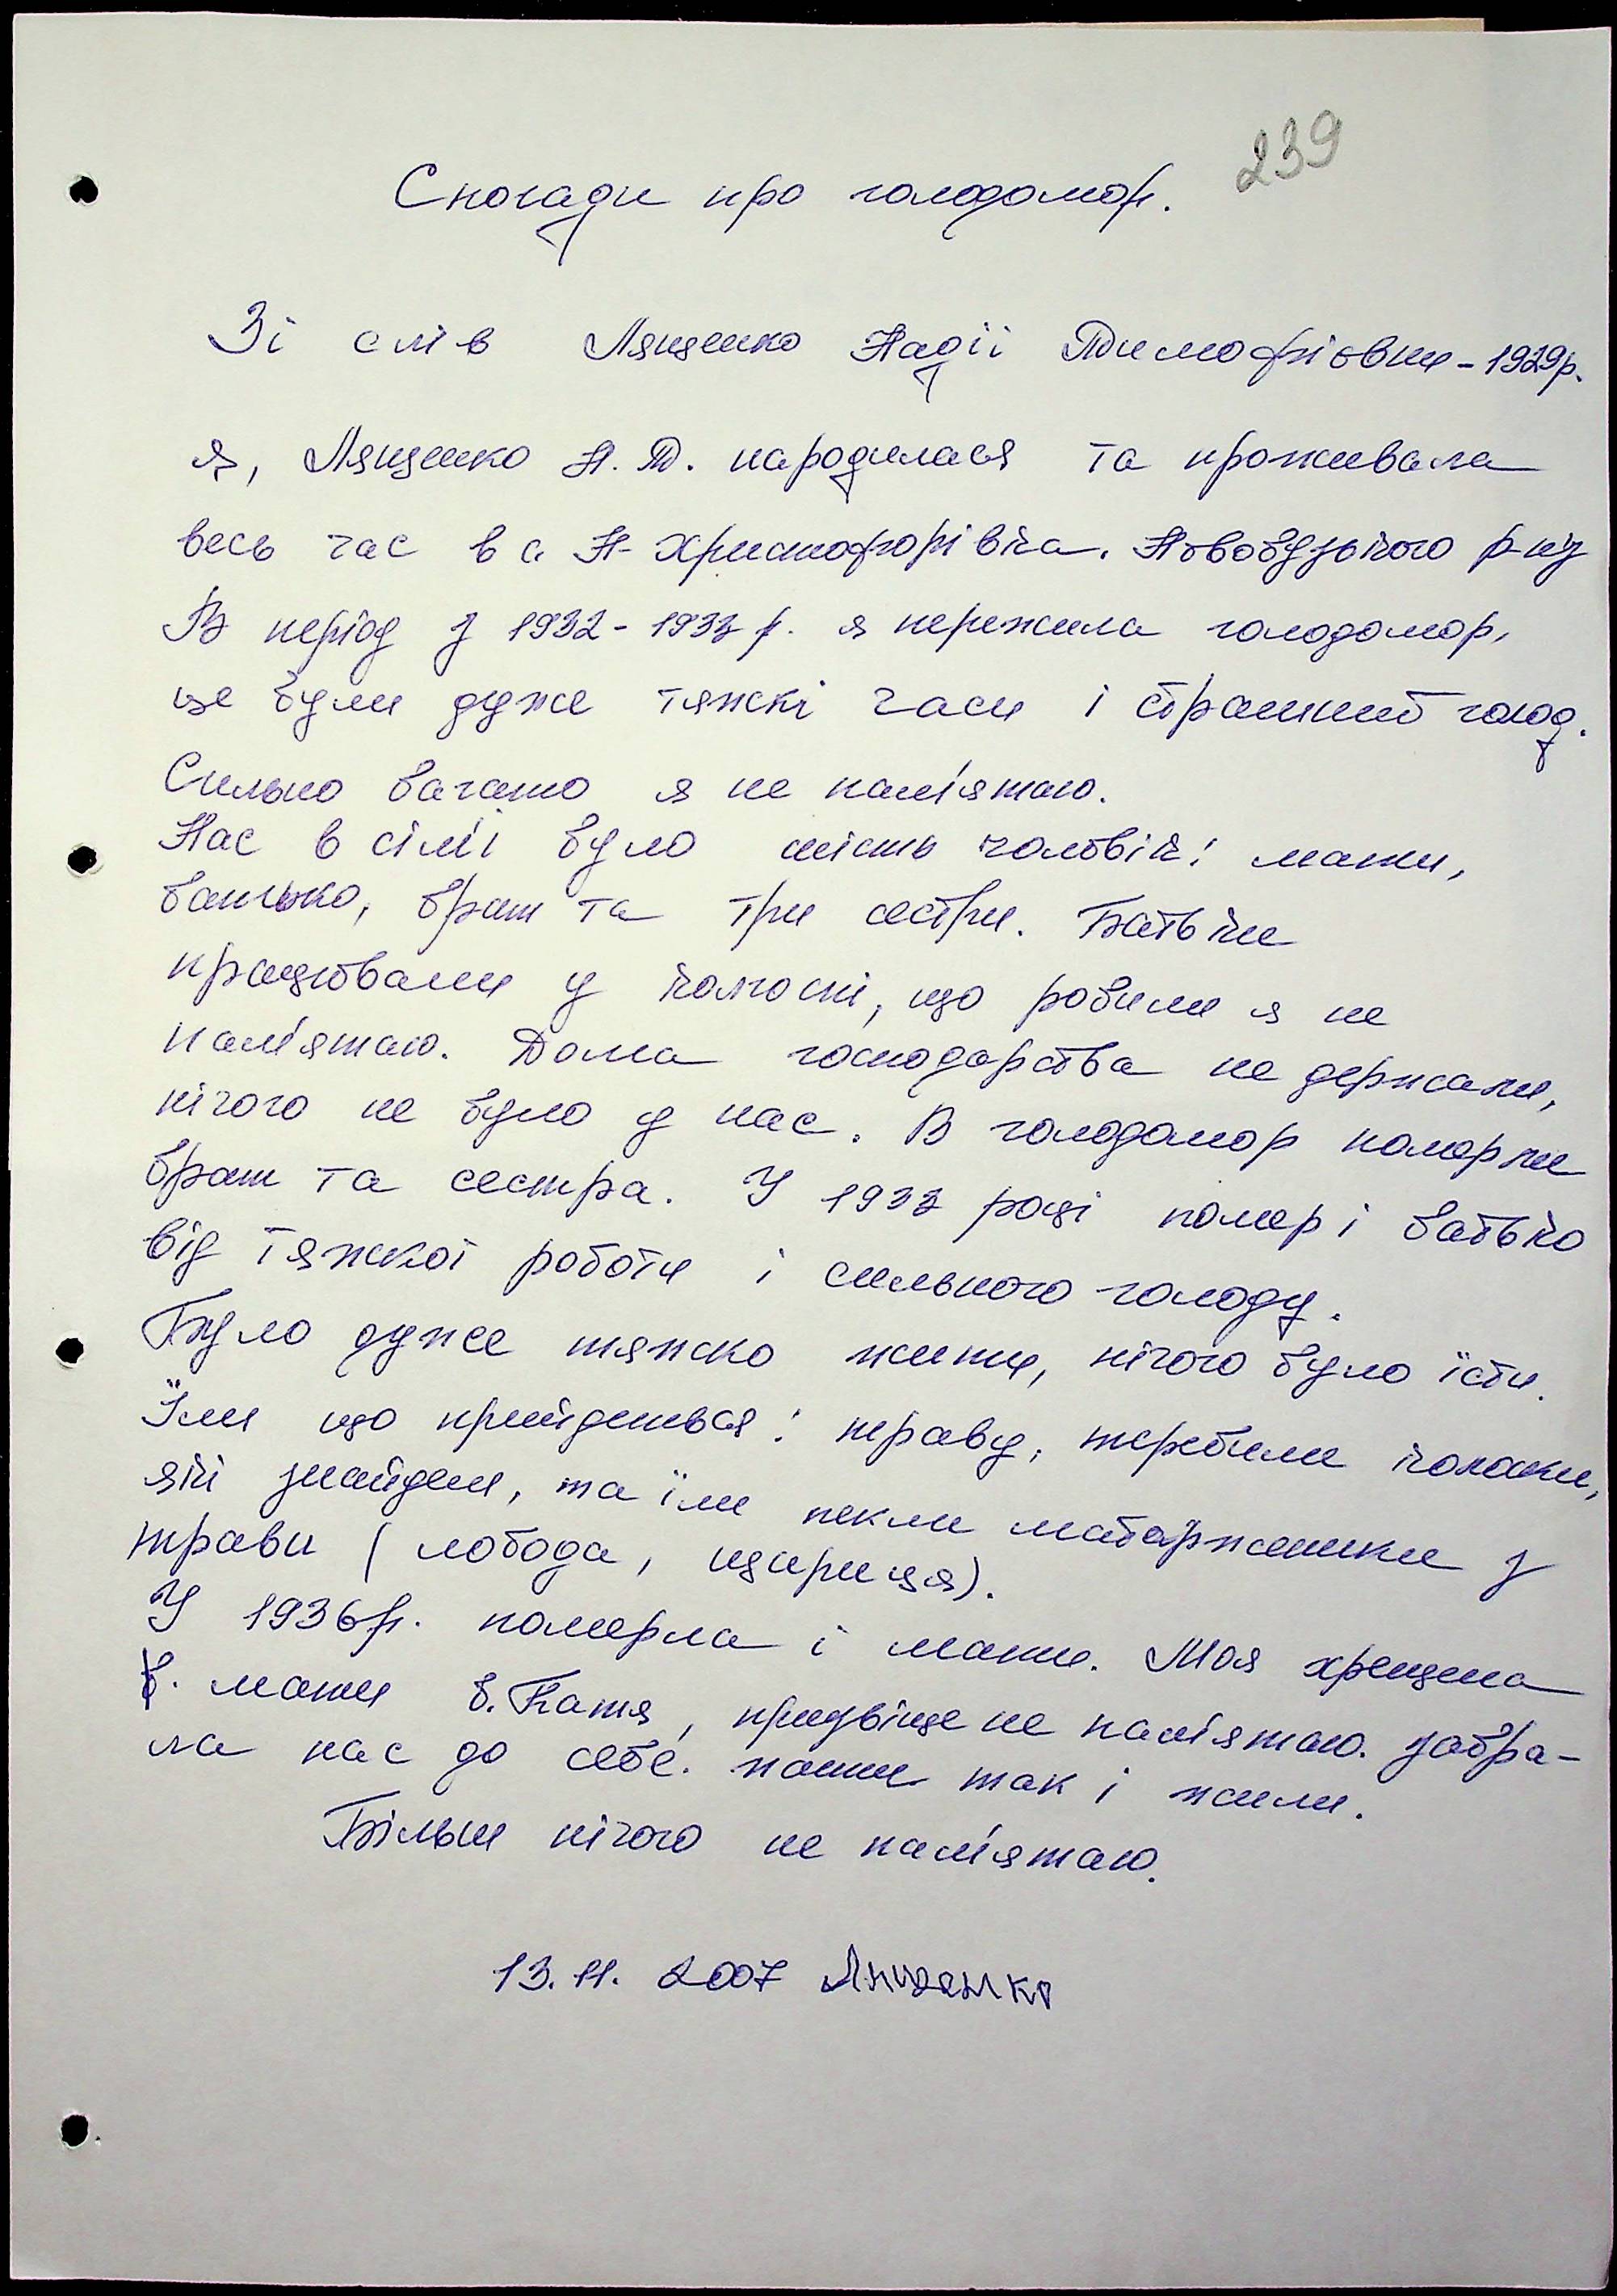 239
Спогади про голодомор.
Зі слів Лященко Надії Тимофіївни - 1929р.
Я, Лященко Н. Т. народилася та проживала
весь час в с. Н-Христофорівка. Новобузького р-ну
В період з 1932 - 1933 р. я пережила голодомор,
це були дуже тяжкі часи і страшний голод.
Сильно багато я не пам'ятаю.
Нас в сім'ї було шість чоловік: мати,
батько, брат та три сестри. Батьки
працювали у колгоспі, що робили я не
пам'ятаю. Дома господарства не держали,
нічого не було у нас. В голодомор померли
брат та сестра. У 1933 році помер і батько
від тяжкої роботи і сильного голоду.
Було дуже тяжко жити, нічого було їсти.
Їли що прийдеться: траву, теребили колоски,
які знайдем, та їли пекли маторженики з
трави (лобода, щириця).
У 1936 р. померла і мати. Моя хрещена
мати б. Катя, призвіще не пам'ятаю. забра-
ла нас до себе. так і жили.
Більш нічого не пам'ятаю.
13. 11. 2007 Лященко